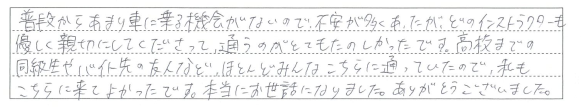 普段からあまり車に乗る機会がないので、不安が多くあったが、どのインストラクターも
優しく親切にしてくださって、通うのがとてもたのしかったです。高校までの
同級生やバイト先の友人など、ほとんどみんなこちらに通っていたので、私も
こちらに来てよかったです。本当にお世話になりました。ありがとうございました。